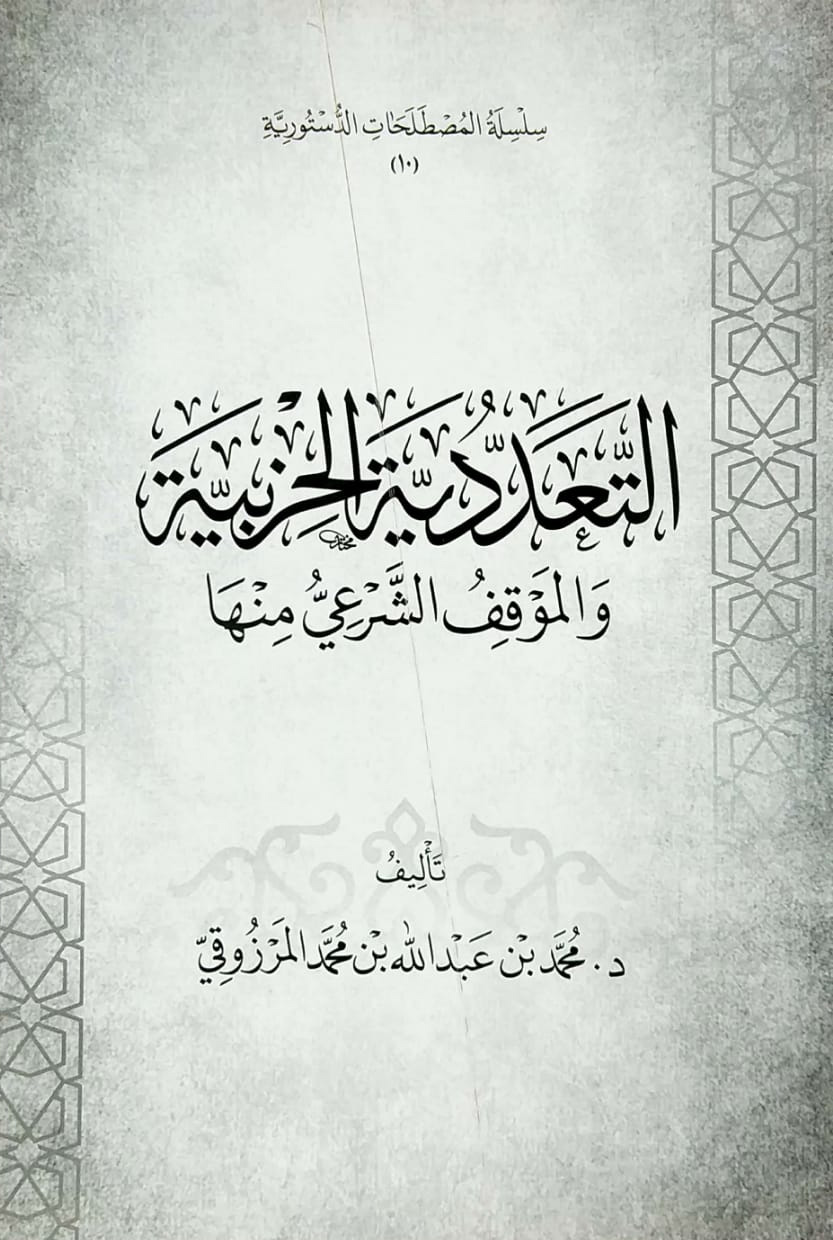 سِلْسِلَةُ المُصْطَلَحَاتِ الدُّسْتُورِيَّةِ
(١٠)
التَّعَدُّدِيَّةُ الحِزْبِيَّةُ
وَالمَوْقِفُ الشَّرْعِيُّ مِنْهَا
تَأْلِيفُ
د. مُحَمَّد بْن عَبْدالله بْن مُحَمَّد المَرْزُوقِيّ